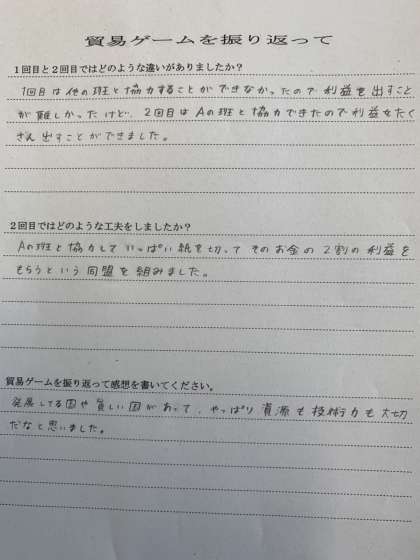 貿易ゲームを振り返って
1回目と2回目ではどのような違いがありましたか?
1回目は他の班と協力することができなかったので利益を出すこと
が難しかったけど、2回目はAの班と協力できたので利益をたく
さん出すことができました。
2回目ではどのような工夫をしましたか?
Aの班と協力していっぱい紙を切ってそのお金の2割の利益を
もらうという同盟を組みました。
貿易ゲームを振り返って感想を書いてください。
発展してる国や貧しい国があって、やっぱり資源も技術力も大切
だなと思いました。